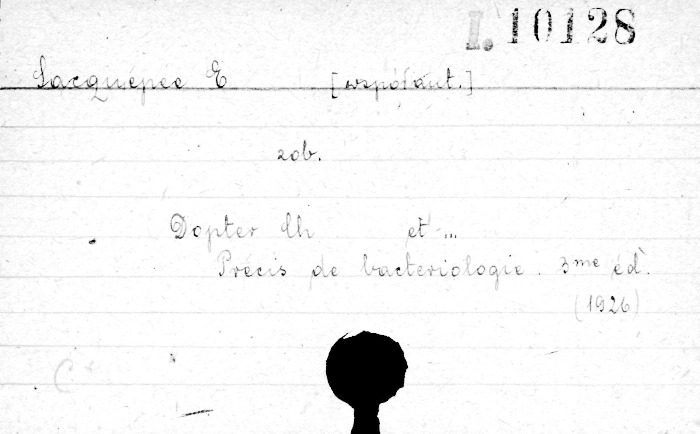 I. 10128
Sacquépée E [współaut.]
zob.
Dopter Ch et ...
Précis de bacteriologie. 3me éd.
(1926)